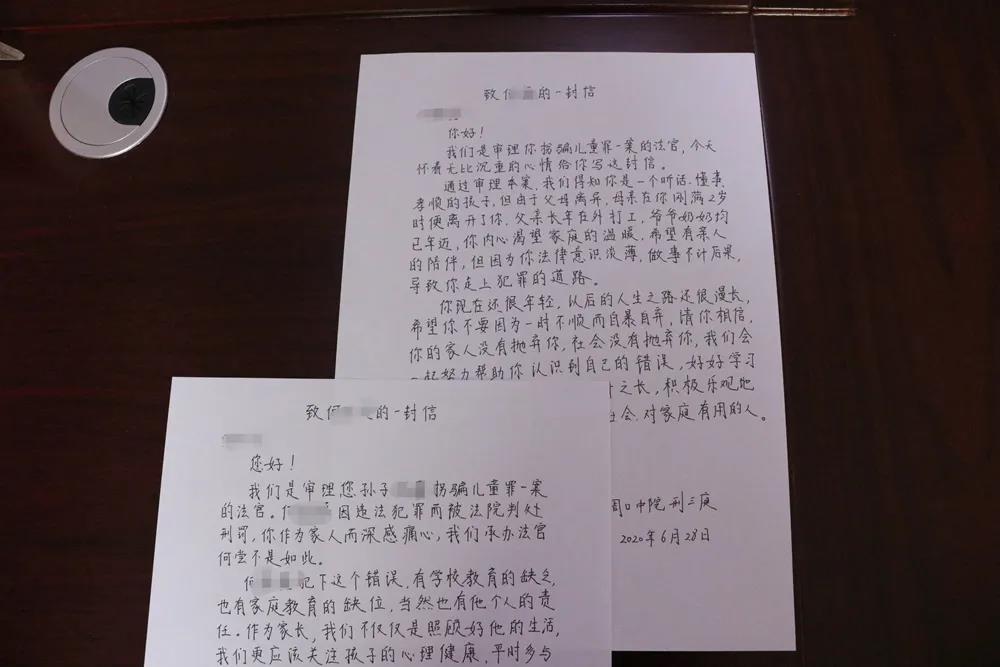 致何的一封信
你好！
我们是审理你拐骗儿童罪一案的法官，今天
怀着无比沉重的心情给你写这封信。
通过审理本案，我们得知你是一个听话、懂事、
孝顺的孩子，但由于父母离异，母亲在你刚满2岁
时便离开了你，父亲长年在外打工，爷爷奶奶均
已年近，你内心渴望家庭的温暖，希望有亲人
的陪伴，但因为你法律意识淡薄，做事不计后果，
导致你走上犯罪的道路。
你现在还很年轻，以后的人生之路还很漫长，
希望你不要因为一时不顺而自暴自弃，请你相信，
你的家人没有抛弃你，社会没有抛弃你，我们会
一起努力帮助你认识到自己的错误，好好学习
之长，积极乐观地
社会、对家庭有用的人。
周口中院刑三庭
2020年6月28日
致何的一封信
您好！
我们是审理您孙子拐骗儿童罪一案
的法官。何因违法犯罪而被法院判处
刑罚，你作为家人而深感痛心，我们承办法官
何尝不是如此。
何犯下这个错误，有学校教育的缺乏，
也有家庭教育的缺位，当然也有他个人的责
任。作为家长，我们不仅仅是照顾好他的生活，
我们更应该关注孩子的心理健康，平时多与